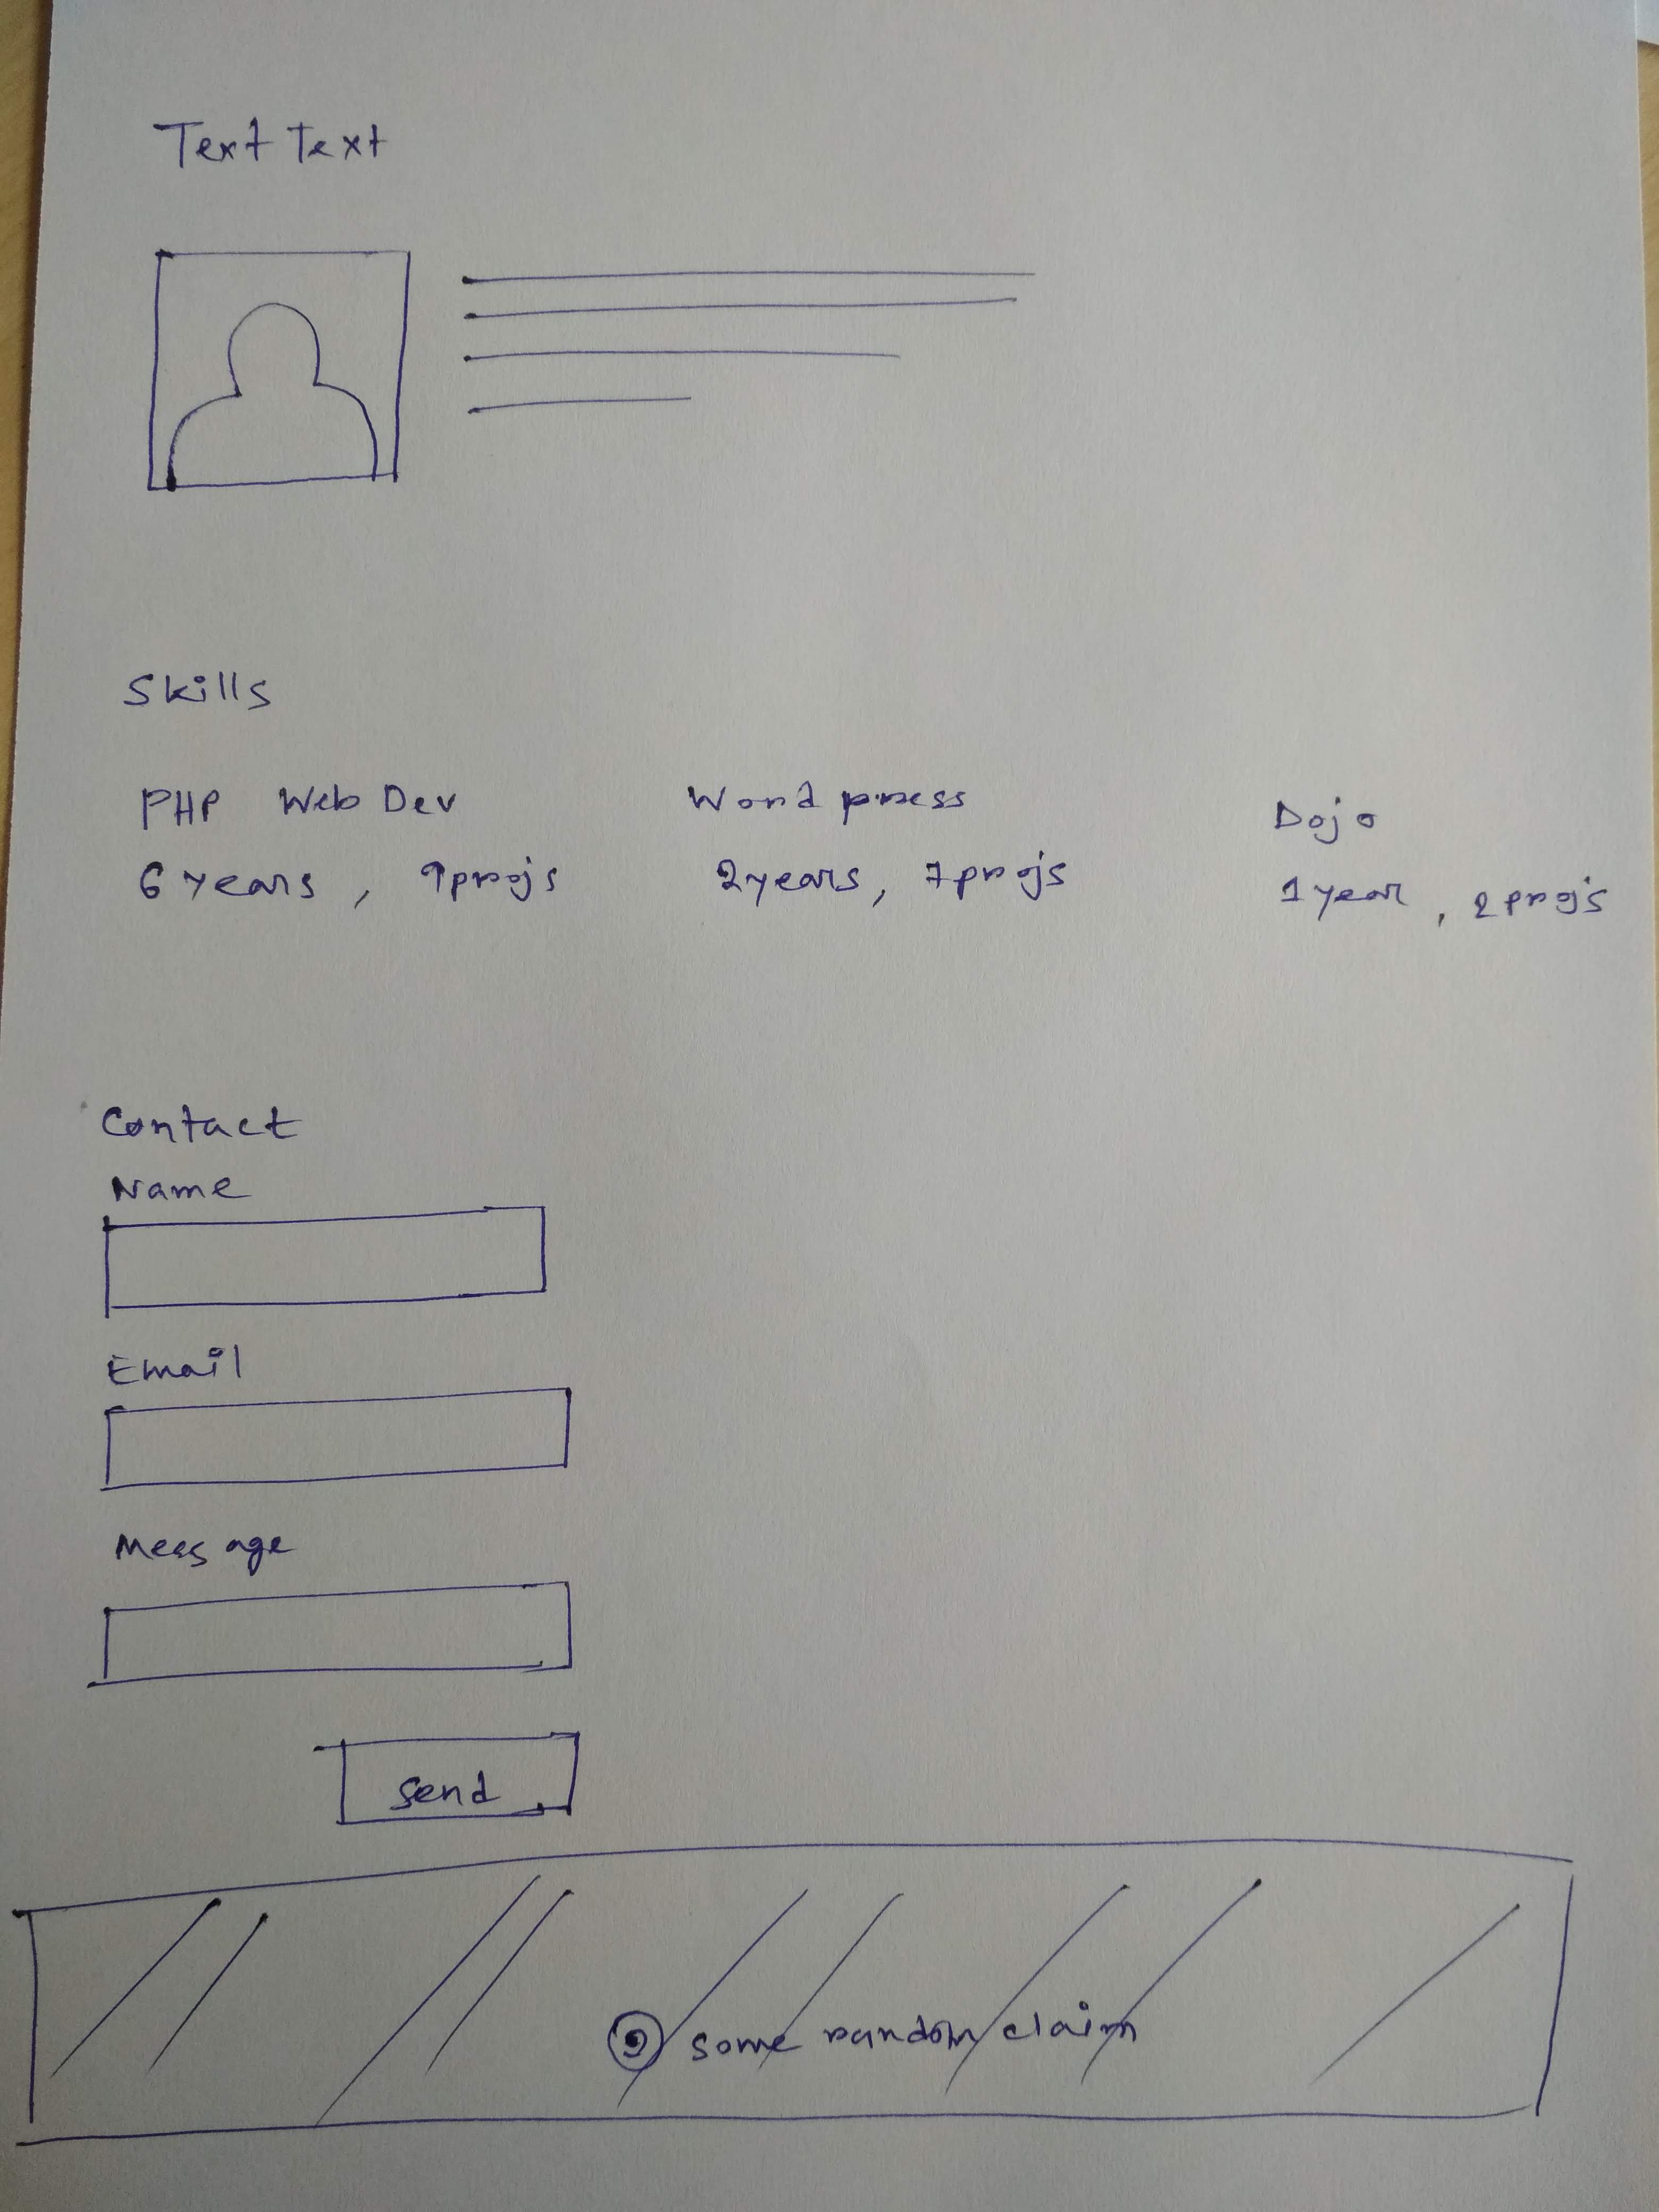 Text Text
Skills
PHP Web Dev
6 years, 9 projs
Wordpress
2 years, 7 projs
Dojo
1 year, 2 projs
Contact
Name
Email
Message
send
some random claim